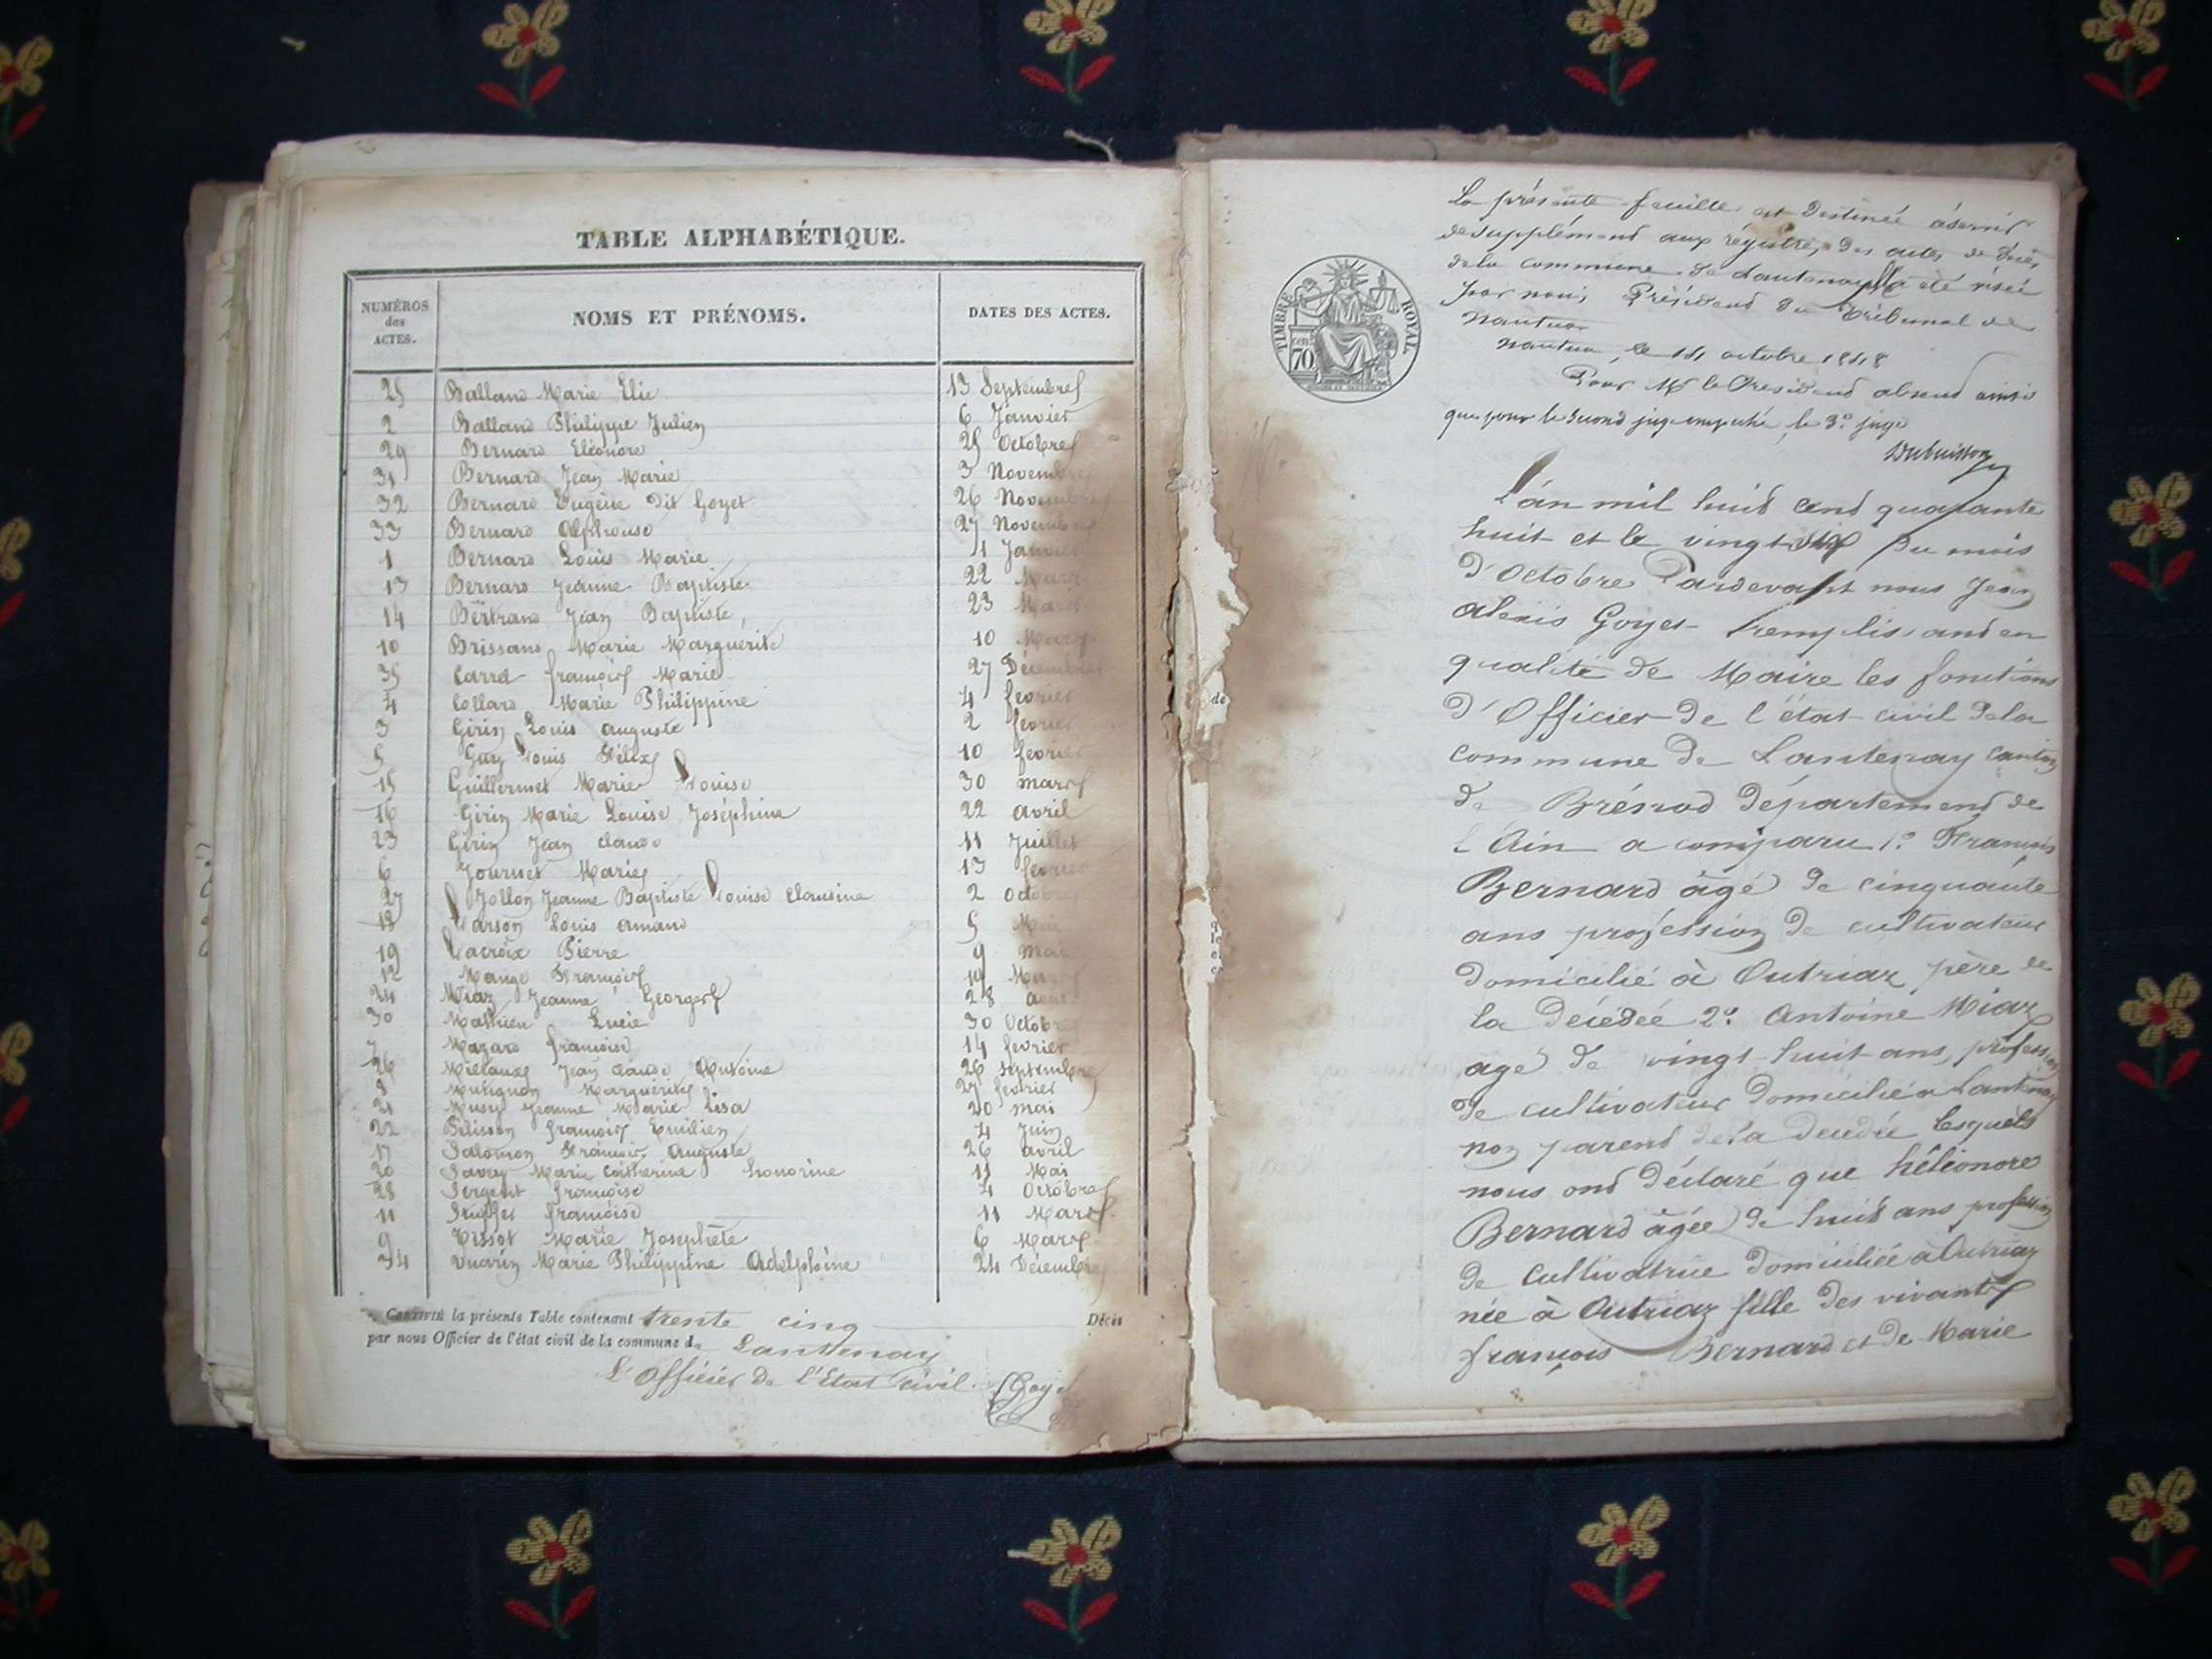 TABLE ALPHABÉTIQUE.
NUMÉROS
des
ACTES.
NOMS ET PRÉNOMS.
DATES DES ACTES.
25 Balland Marie Elie 13 Septembre
2 Balland Philippe Julien 6 Janvier
29 Bernard Eléonore 25 Octobre
31 Bernard Jean Marie 3 Novembre
32 Bernard Eugène dit Goyet 26 Novembre
33 Bernard Alphonse 27 Novembre
1 Bernard Louis Marie 1 Janvier
13 Bernard Jeanne Baptiste 22 Mars
14 Bertrand Jean Baptiste 23 Mars
10 Brissand Marie Marguerite 10 Mars
35 Carret françois Marie 27 Décembre
4 Collard Marie Philippine 4 fevrier
3 Girin Louis auguste 2 fevrier
5 Guy Louis Félix 10 fevrier
15 Guillermet Marie Louise 30 mars
16 Girin Marie Louise Joséphine 22 avril
23 Girin Jean claude 11 Juillet
6 Journet Marie 13 fevrier
27 Jollon Jeanne Baptiste Louise claudine 2 Octobre
18 Larson Louis armand 5 Mai
19 Lacroix Pierre 9 Mai
12 Mange François 19 Mars
24 Miaz Jeanne Georges 28 août
30 Mathieu Lucie 30 Octobre
7 Mazard françoise 14 fevrier
26 Jean claude Antoine 26 septembre
8 Marguerite 27 fevrier
21 Musy Jeanne Marie Lisa 20 mai
22 Pélisson françois Emilien 4 Juin
17 Salomon François Auguste 26 avril
20 Savey Marie Catherine honorine 11 Mai
28 Sergent françoise 4 Octobre
11 françoise 11 Mars
9 Tissot Marie Josephete 6 Mars
34 Vuarin Marie Philippine Adelphine 24 Décembre
CERTIFIÉ la présente Table contenant trente cinq Décès
par nous Officier de l'état civil de la commune de Lantenay
L'Officier de l'Etat civil. Goyet
TIMBRE ROYAL
70
cen.
La présente feuille est destinée à servir
de supplément aux registres des actes de décès
de la commune de Lantenay a été visée
par nous Président du Tribunal de
Nantua
Nantua, le 14 octobre 1848
Pour Mr le Président absent ainsi
que pour le second juge empêché, le 3e juge
Dubuisson
L'an mil huit cent quarante
huit et le vingt six du mois
d'Octobre Pardevant nous Jean
alexis Goyet remplissant en
qualité de Maire les fonctions
d'Officier de l'état civil de la
commune de Lantenay canton
de Brénod département de
l'Ain a comparu 1° François
Bernard âgé de cinquante
ans profession de cultivateur
domicilié à Outriaz père de
la décédée 2° Antoine Miaz
age de vingt huit ans, profession
de cultivateur domicilié a Lantenay
non parent de la décédée lesquels
nous ont déclaré que hèléonore
Bernard âgée de huit ans profession
de cultivatrice domiciliée à Outriaz
née à Outriaz fille des vivants
françois Bernard et de Marie